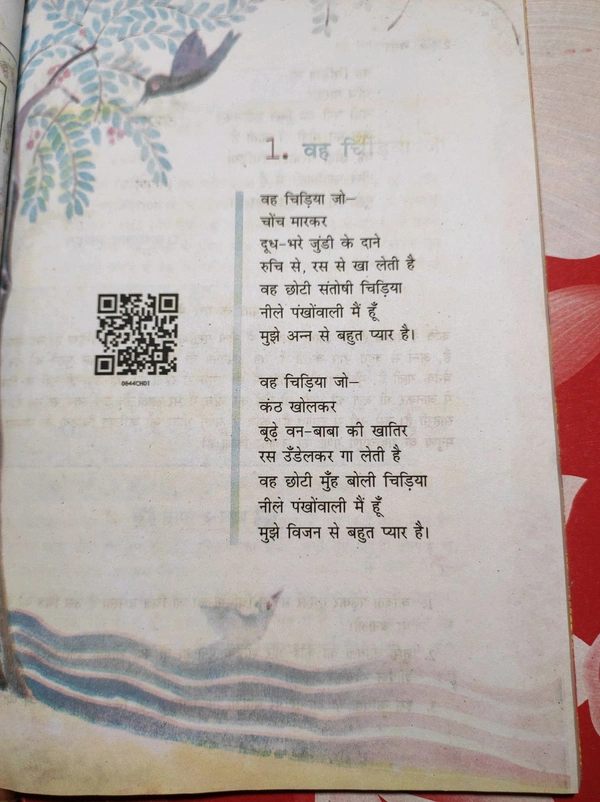 1. वह चिड़िया जो
वह चिड़िया जो–
चोंच मारकर
दूध-भरे जुंडी के दाने
रुचि से, रस से खा लेती है
वह छोटी संतोषी चिड़िया
नीले पंखोंवाली मैं हूँ
मुझे अन्न से बहुत प्यार है।
0644CH01
वह चिड़िया जो–
कंठ खोलकर
बूढ़े वन-बाबा की खातिर
रस उँडेलकर गा लेती है
वह छोटी मुँह बोली चिड़िया
नीले पंखोंवाली मैं हूँ
मुझे विजन से बहुत प्यार है।